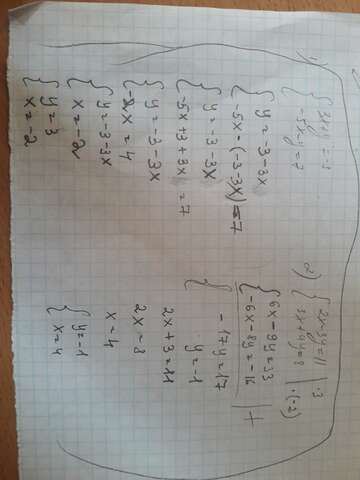 1) { 3x+y=-3
-5x-y=7
{ y=-3-3x
-5x-(-3-3x)=7
{ y=-3-3x
-5x+3+3x=7
{ y=-3-3x
-2x=4
{ y=-3-3x
x=-2
{ y=3
x=-2
2) { 2x-3y=11 | ·3
3x+4y=8 | ·(-2)
{ 6x-9y=33
-6x-8y=-16 | +
{ -17y=17
y=-1
2x+3=11
2x=8
x=4
{ y=-1
x=4